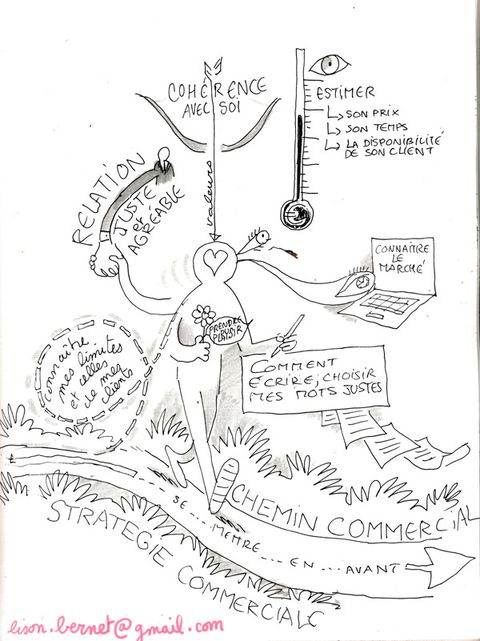 COHÉRENCE
AVEC SOI
valeurs
ESTIMER
SON PRIX
SON TEMPS
LA DISPONIBILITÉ
DE SON CLIENT
RELATION
JUSTE
et
AGRÉABLE
CONNAITRE
LE
MARCHÉ
PRENDRE
DU
PLAISIR
connaître
mes limites
et celles
de mes
clients
COMMENT
ECRIRE; CHOISIR
MES MOTS JUSTES
CHEMIN COMMERCIAL
SE... METTRE... EN... AVANT
STRATEGIE COMMERCIALE
lison.bernet@gmail.com